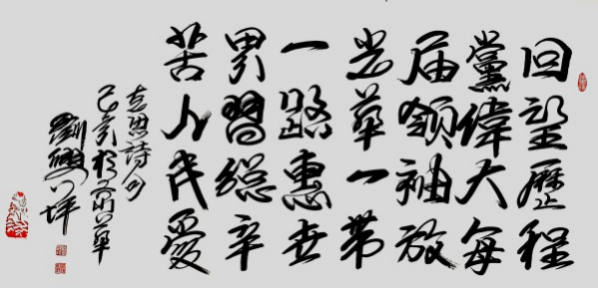 回望歷程
黨偉大每
届領袖放
光華一帶
一路惠世
界習總辛
苦人民愛
思詩句
己亥
劉坪